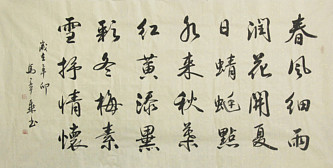 春風細雨
潤花開夏
日蜻蜓點
水來秋葉
紅黃添異
彩冬梅素
雪抒情懷
歲在辛卯
書